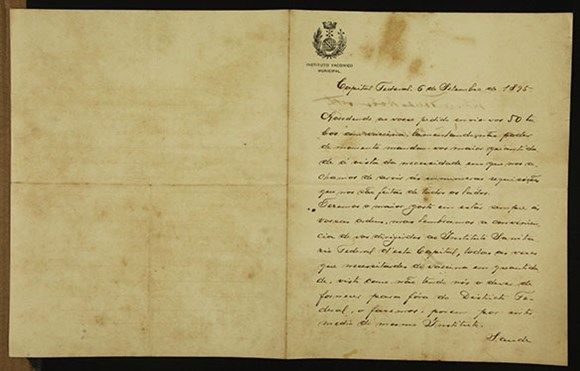 INSTITUTO VACCINICO
MUNICIPAL
Capital Federal, 6 de Setembro de 1895
Accedendo ao vosso pedido envio-vos 50 tu-
bos de vaccina, lamentando não poder
de momento mandar-vos maior quantida-
de á vista da necessidade em que nos a-
chamos de attender ás innumeras requisições
que nos são feitas de todos os lados.
Teremos o maior gosto em estar sempre ás
vossas ordens, mas lembramos a convenien-
cia de vos dirigirdes ao Instituto Sanita-
rio Federal d'esta Capital, todas as vezes
que necessitardes de vaccina em quantida-
de, visto como não tendo nós o dever de
fornecer para fóra do Districto Fe-
deral, o fazemos, porem por inter-
medio do mesmo Instituto.
Saude